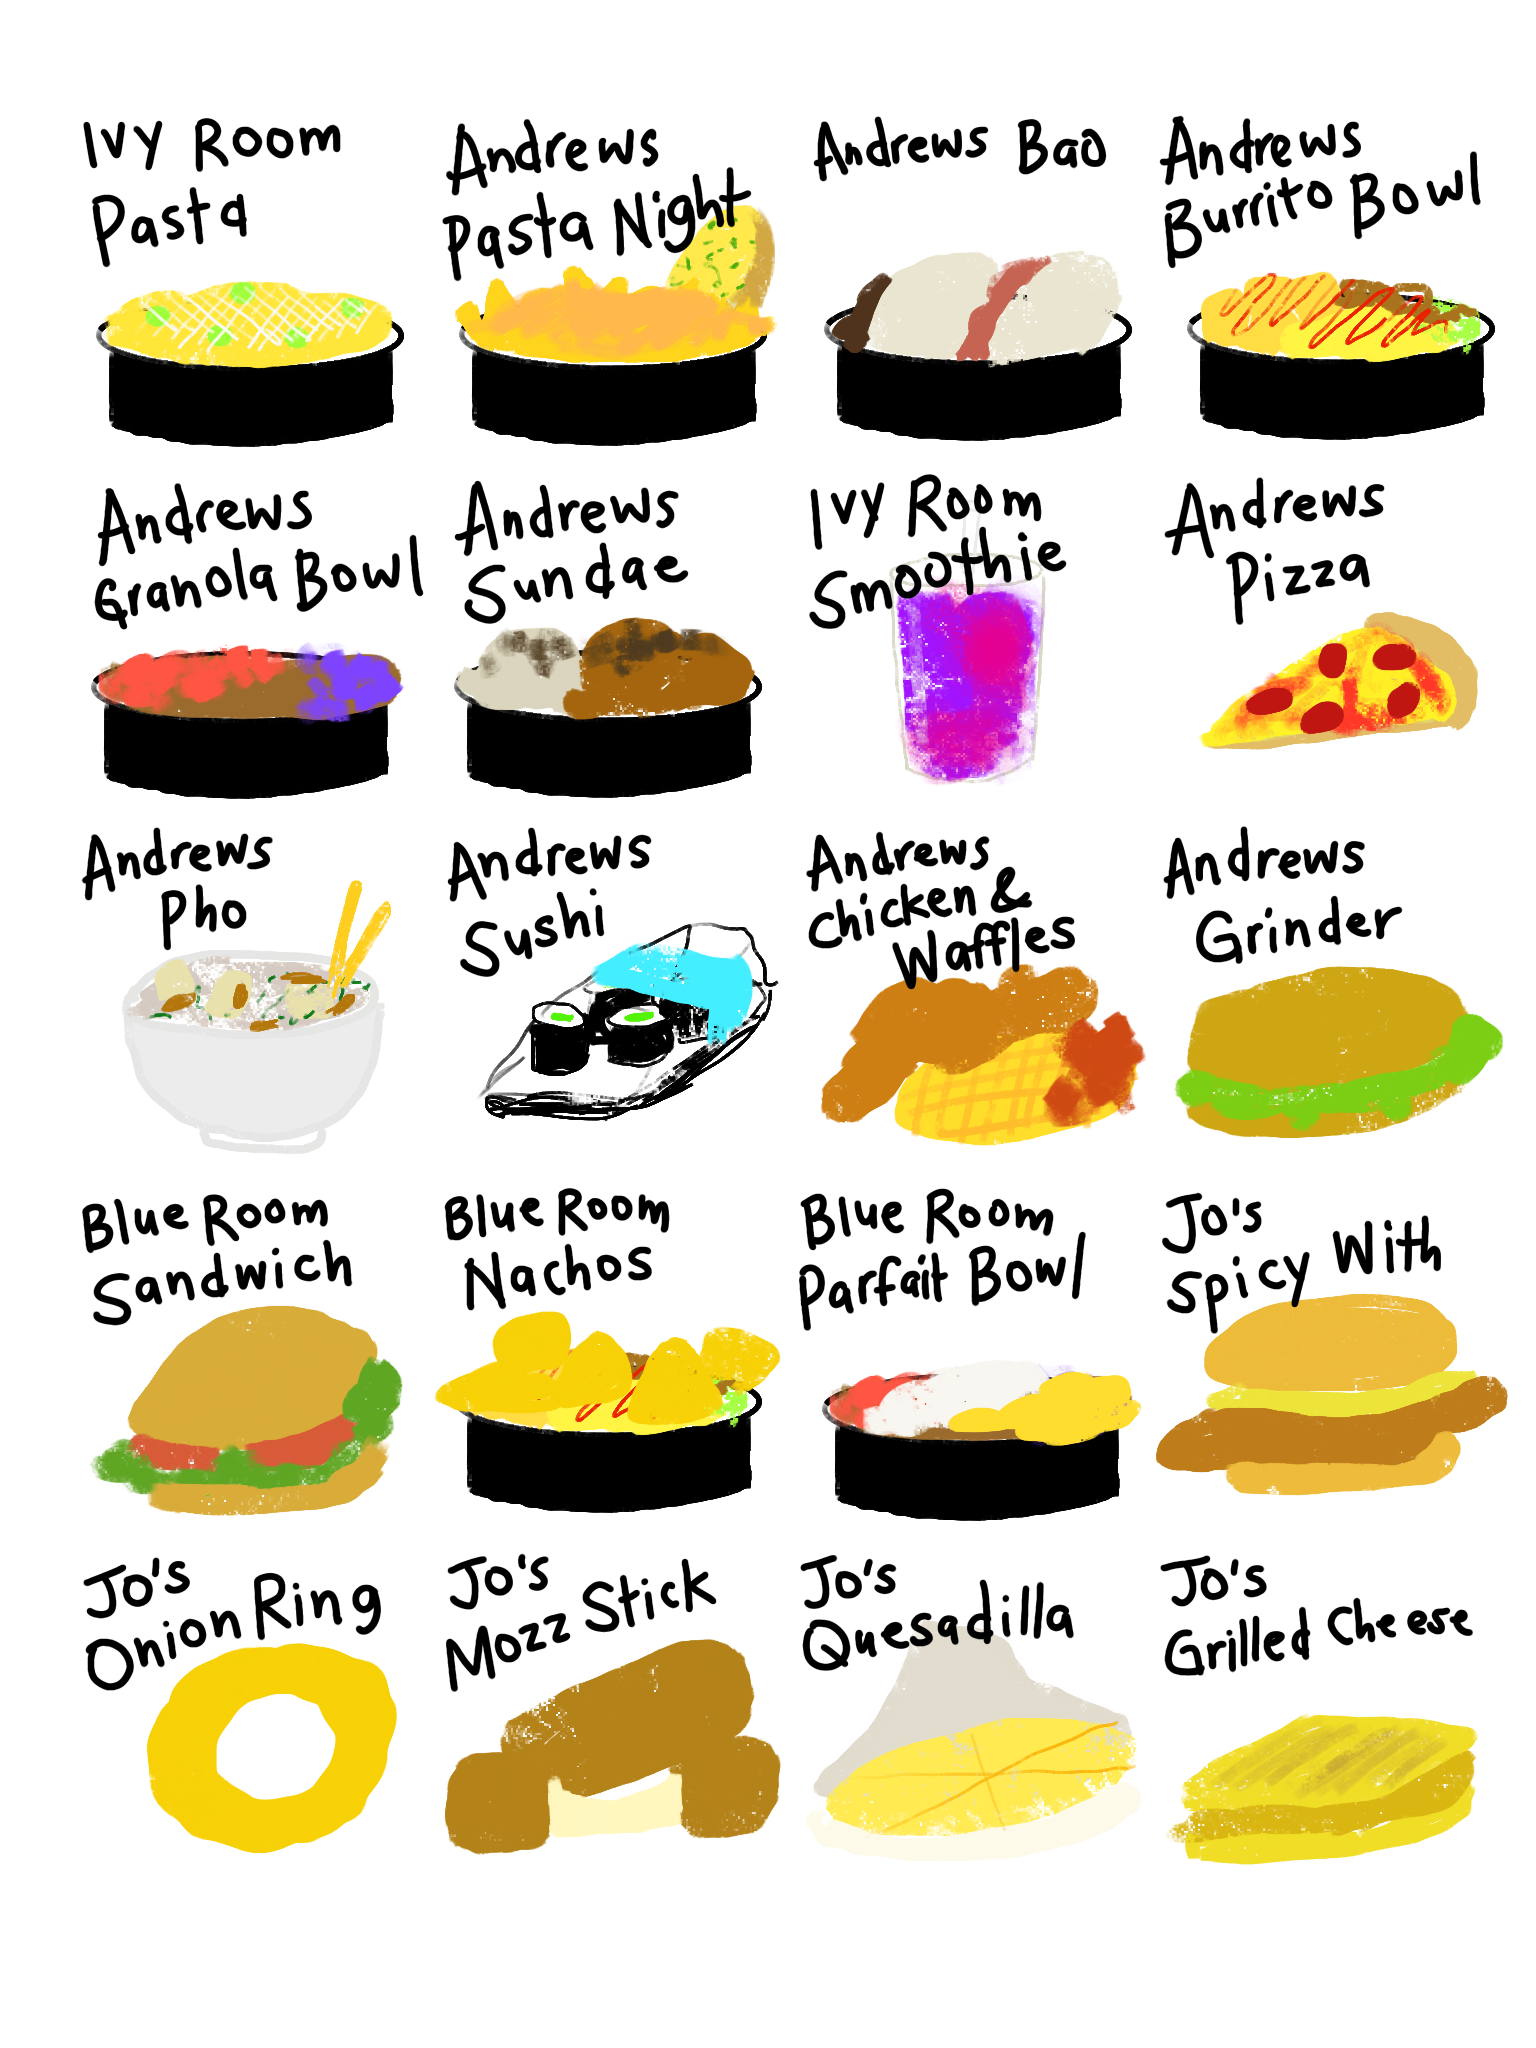 Ivy Room
Pasta
Andrews
Pasta Night
Andrews Bao
Andrews
Burrito Bowl
Andrews
Granola Bowl
Andrews
Sundae
Ivy Room
Smoothie
Andrews
Pizza
Andrews
Pho
Andrews
Sushi
Andrews
Chicken &
Waffles
Andrews
Grinder
Blue Room
Sandwich
Blue Room
Nachos
Blue Room
Parfait Bowl
Jo's
Spicy With
Jo's
Onion Ring
Jo's
Mozz Stick
Jo's
Quesadilla
Jo's
Grilled Cheese